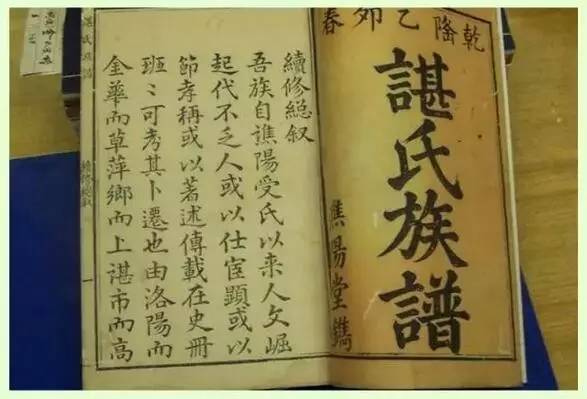 乾隆乙卯春
諶氏族譜
譙陽堂鐫
續修總叙
吾族自譙陽受氏以来人文崛
起代不乏人或以仕宦顯或以
節孝稱或以著述傳載在史冊
班〻可考其卜遷也由洛陽而
金華而草萍鄉而上諶市而高
諶氏族譜
續修總叙
一